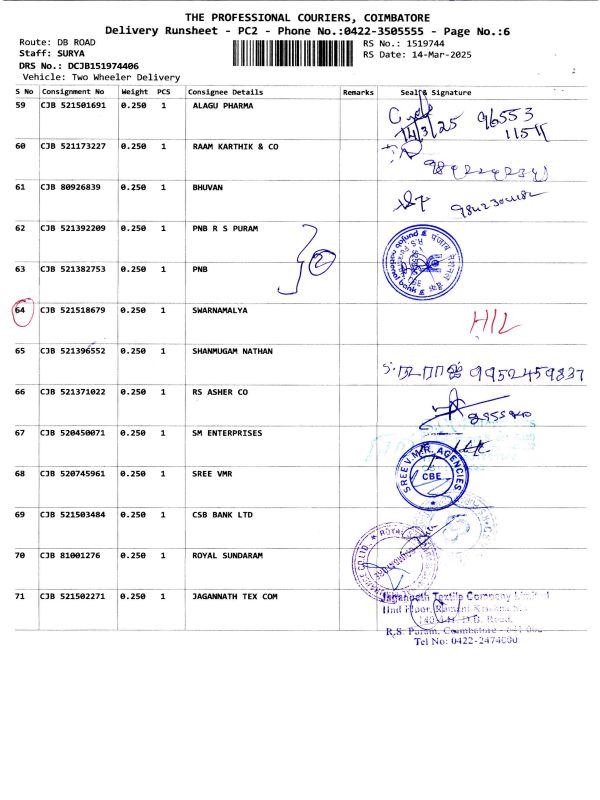 THE PROFESSIONAL COURIERS, COIMBATORE
Delivery Runsheet - PC2 - Phone No.:0422-3505555 - Page No.:6
Route: DB ROAD
RS No.: 1519744
Staff: SURYA
RS Date: 14-Mar-2025
DRS No.: DCJB151974406
Vehicle: Two Wheeler Delivery
S No Consignment No Weight PCS Consignee Details Remarks Seal & Signature
59 CJB 521501691 0.250 1 ALAGU PHARMA
14/3/25 96553
11511
60 CJB 521173227 0.250 1 RAAM KARTHIK & CO
61 CJB 80926839 0.250 1 BHUVAN
62 CJB 521392209 0.250 1 PNB R S PURAM
2
63 CJB 521382753 0.250 1 PNB
national bank
64 CJB 521518679 0.250 1 SWARNAMALYA
H/L
65 CJB 521396552 0.250 1 SHANMUGAM NATHAN
9952459837
66 CJB 521371022 0.250 1 RS ASHER CO
67 CJB 520450071 0.250 1 SM ENTERPRISES
68 CJB 520745961 0.250 1 SREE VMR
SREE V.M.R. AGENCIES
CBE
69 CJB 521503484 0.250 1 CSB BANK LTD
70 CJB 81001276 0.250 1 ROYAL SUNDARAM
ROYAL
71 CJB 521502271 0.250 1 JAGANNATH TEX COM
Jagannath Textile Company Limited
IInd Floor,
D.B. Road,
R.S. Puram, Coimbatore - 641 002
Tel No: 0422-2474000